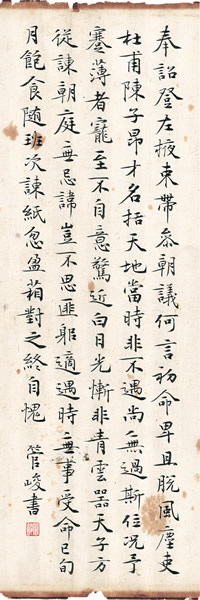 奉詔登左掖束帶叅朝議何言初命卑且脫風塵吏
杜甫陳子昂才名括天地當時非不遇尚無過斯位況予
蹇薄者寵至不自意驚近白日光慚非青雲器天子方
從諫朝庭無忌諱豈不思匪躬適遇時無事受命已旬
月飽食随班次諫紙忽盈箱對之終自愧
管峻書